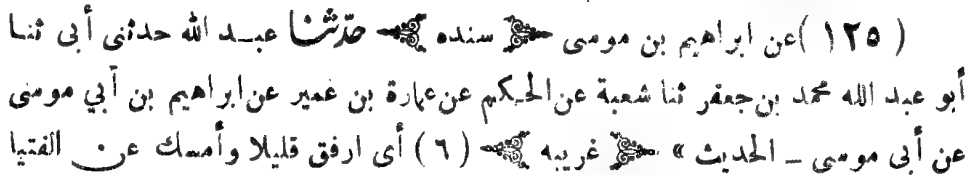 ( ١٢٥ )عن ابراهيم بن موسى ﴿ سنده ﴾ حدّثنا عبد الله حدثنى أبى ثنا
أبو عبد الله محمد بن جعفر ثنا شعبة عن الحكم عن عمارة بن عمير عن ابراهيم بن أبي موسى
عن أبى موسى ــ الحديث » ﴿ غريبه ﴾ ( ٦ ) أى ارفق قليلا وأمسك عن الفتيا